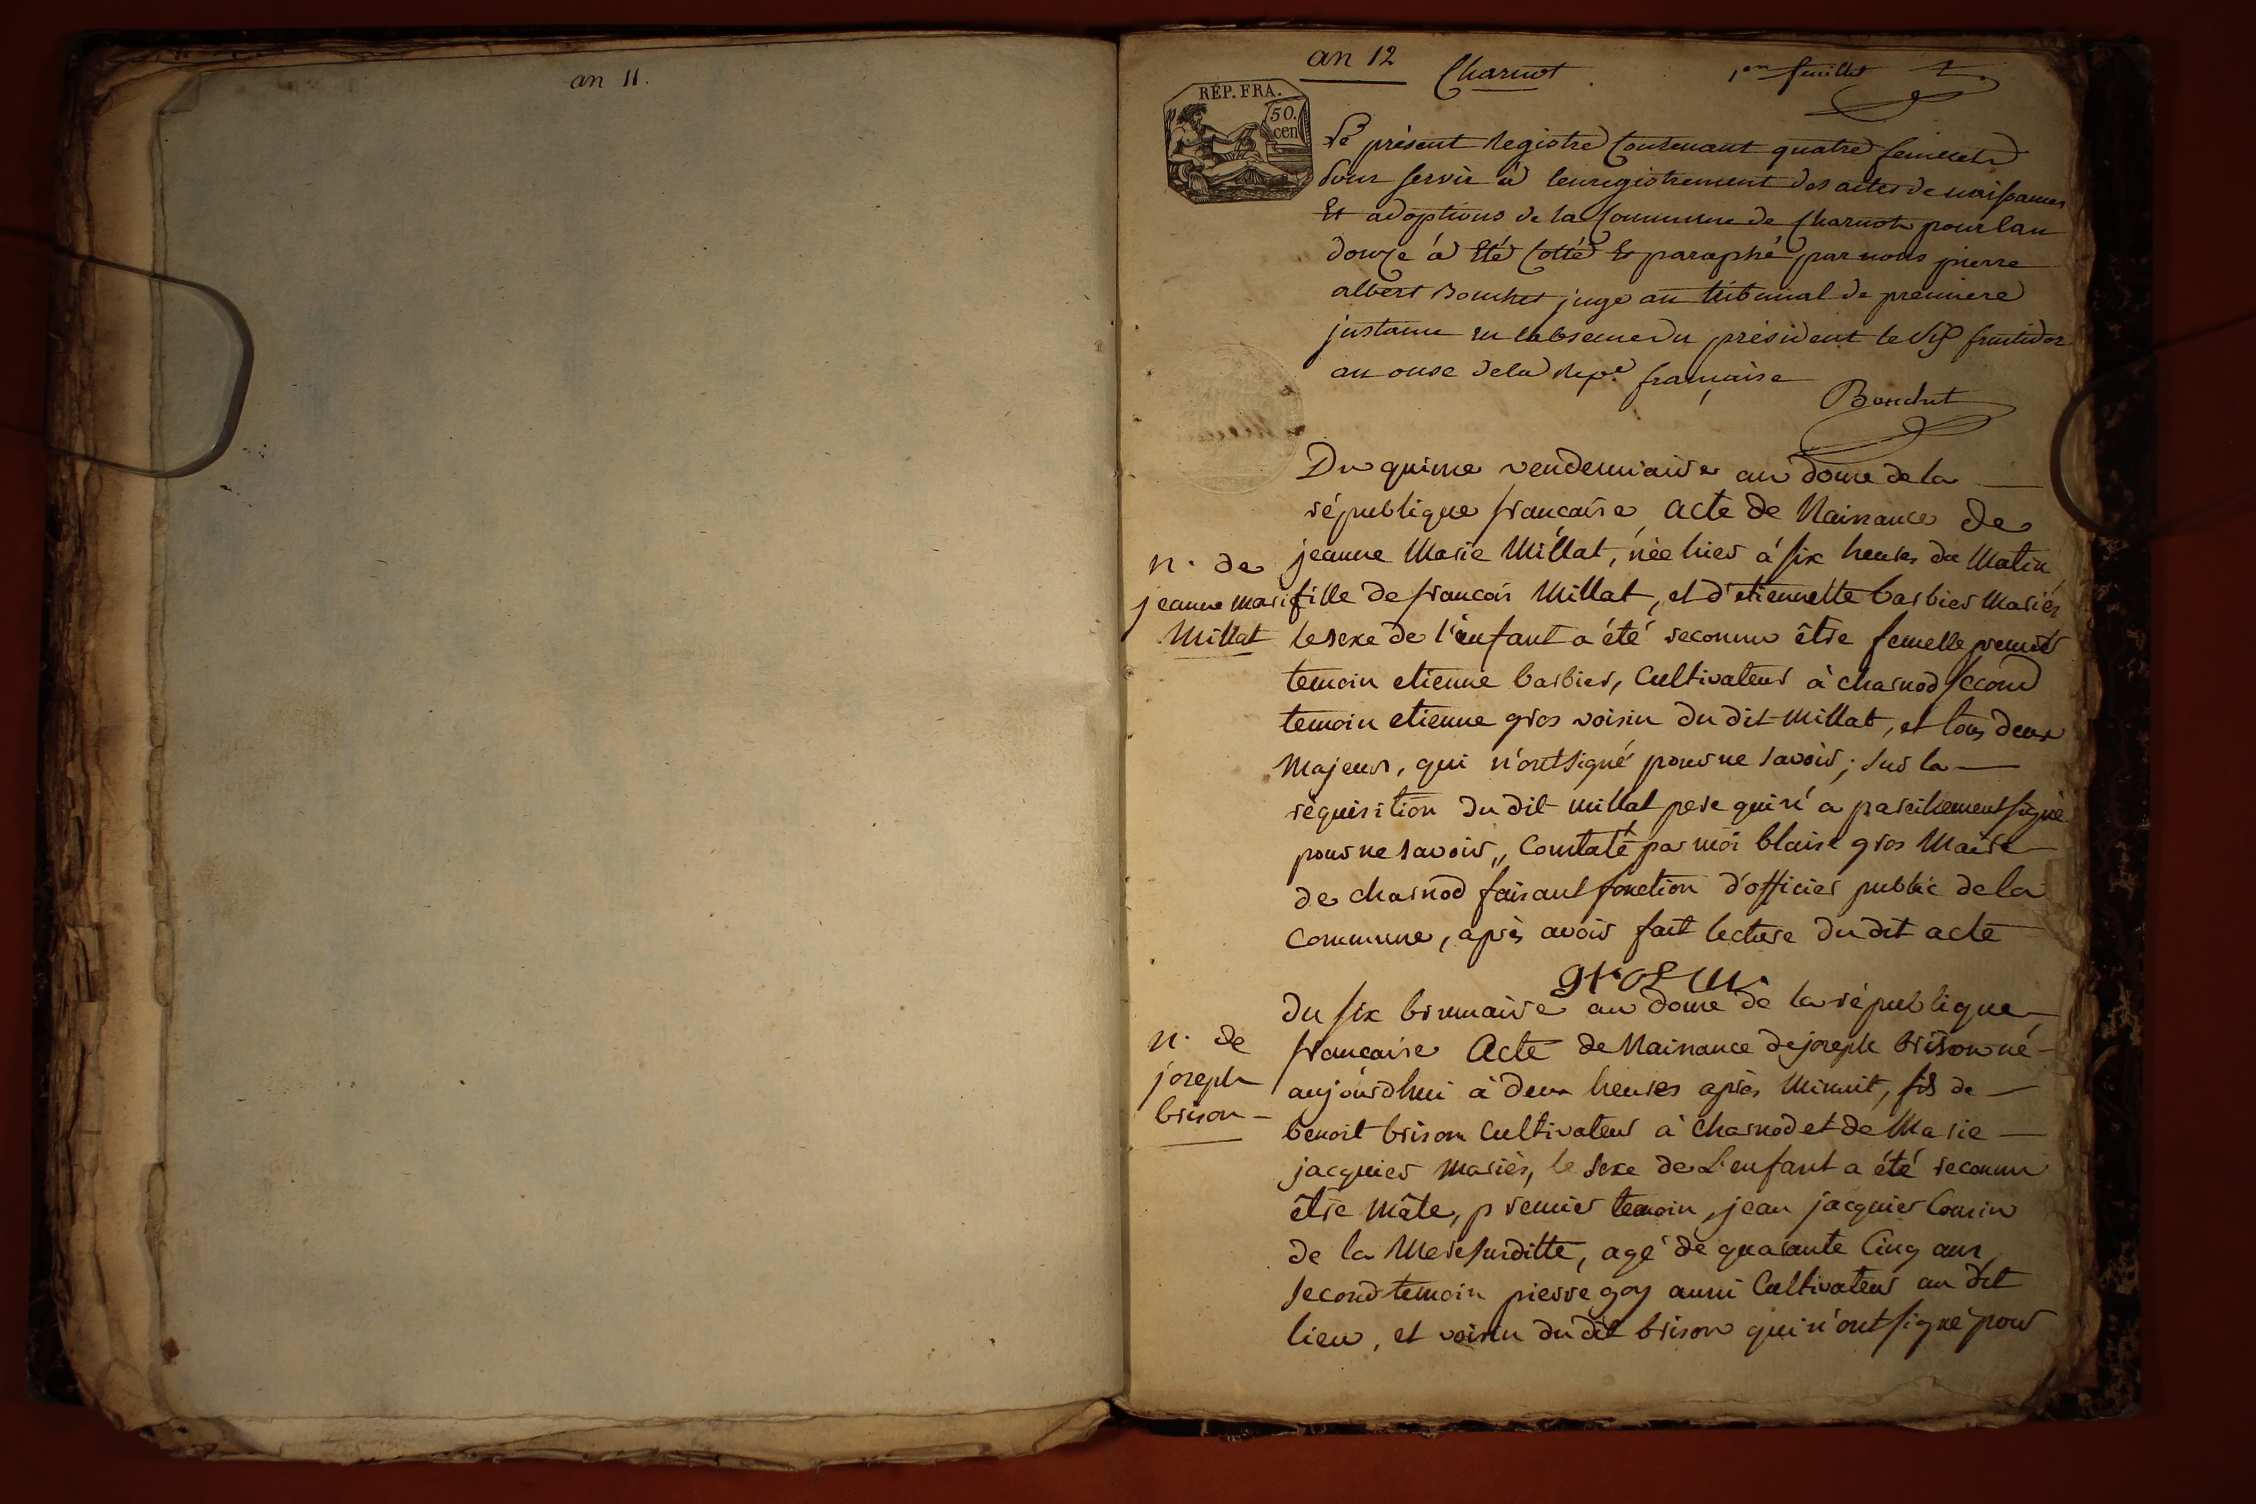 an 11.
an 12
Charnot
1er feuillet
RÉP. FRA.
50.
cen
Le présent Registre Contenant quatre feuillets
pour servir à lenregistrement des actes de naissances
Et adoptions de la Commune de Charnot pour lan
douze à Eté Cotté Et paraphé par nous pierre
albert Bouchet juge au tribunal de premiere
justance en labsence du président le fructidor
an onse de la Repe. française
Bouchet
Du quinze vendemiaire an douze de la
république francaise acte de Naissance de
jeanne Marie Millat, née hier à six heures du Matin
fille de francois Millat, et d'etiennette barbier Mariés
le sexe de l'enfant a été reconnu être femelle premier
temoin etienne barbier, Cultivateur à charnod second
temoin etienne gros voisin du dit Millat, et tous deux
Majeurs, qui n'ont signé pour ne savoir; sur la
réquisition du dit Millat pere qui n'a pareillement signé
pour ne savoir,, Constaté par moi blaise gros Maire
de charnod faisant fonction d'officier public de la
Commune, après avoir fait lecture du dit acte
gros m.
n. de
jeanne marie
Millat
du six brumaire an douze de la république
francaise Acte de Naissance de joseph brison né
aujourdhui à deux heures après Minuit, fils de
benoit brison Cultivateur à charnod et de Marie
jacquier Mariés, le sexe de L'enfant a été reconnu
être Mâle, premier temoin, jean jacquier Cousin
de la Mere surditte, agé de quarante Cinq ans
second temoin pierre goy aussi Cultivateur au dit
lieu, et voisin du dit brison qui n'ont signé pour
n. de
joseph
brison